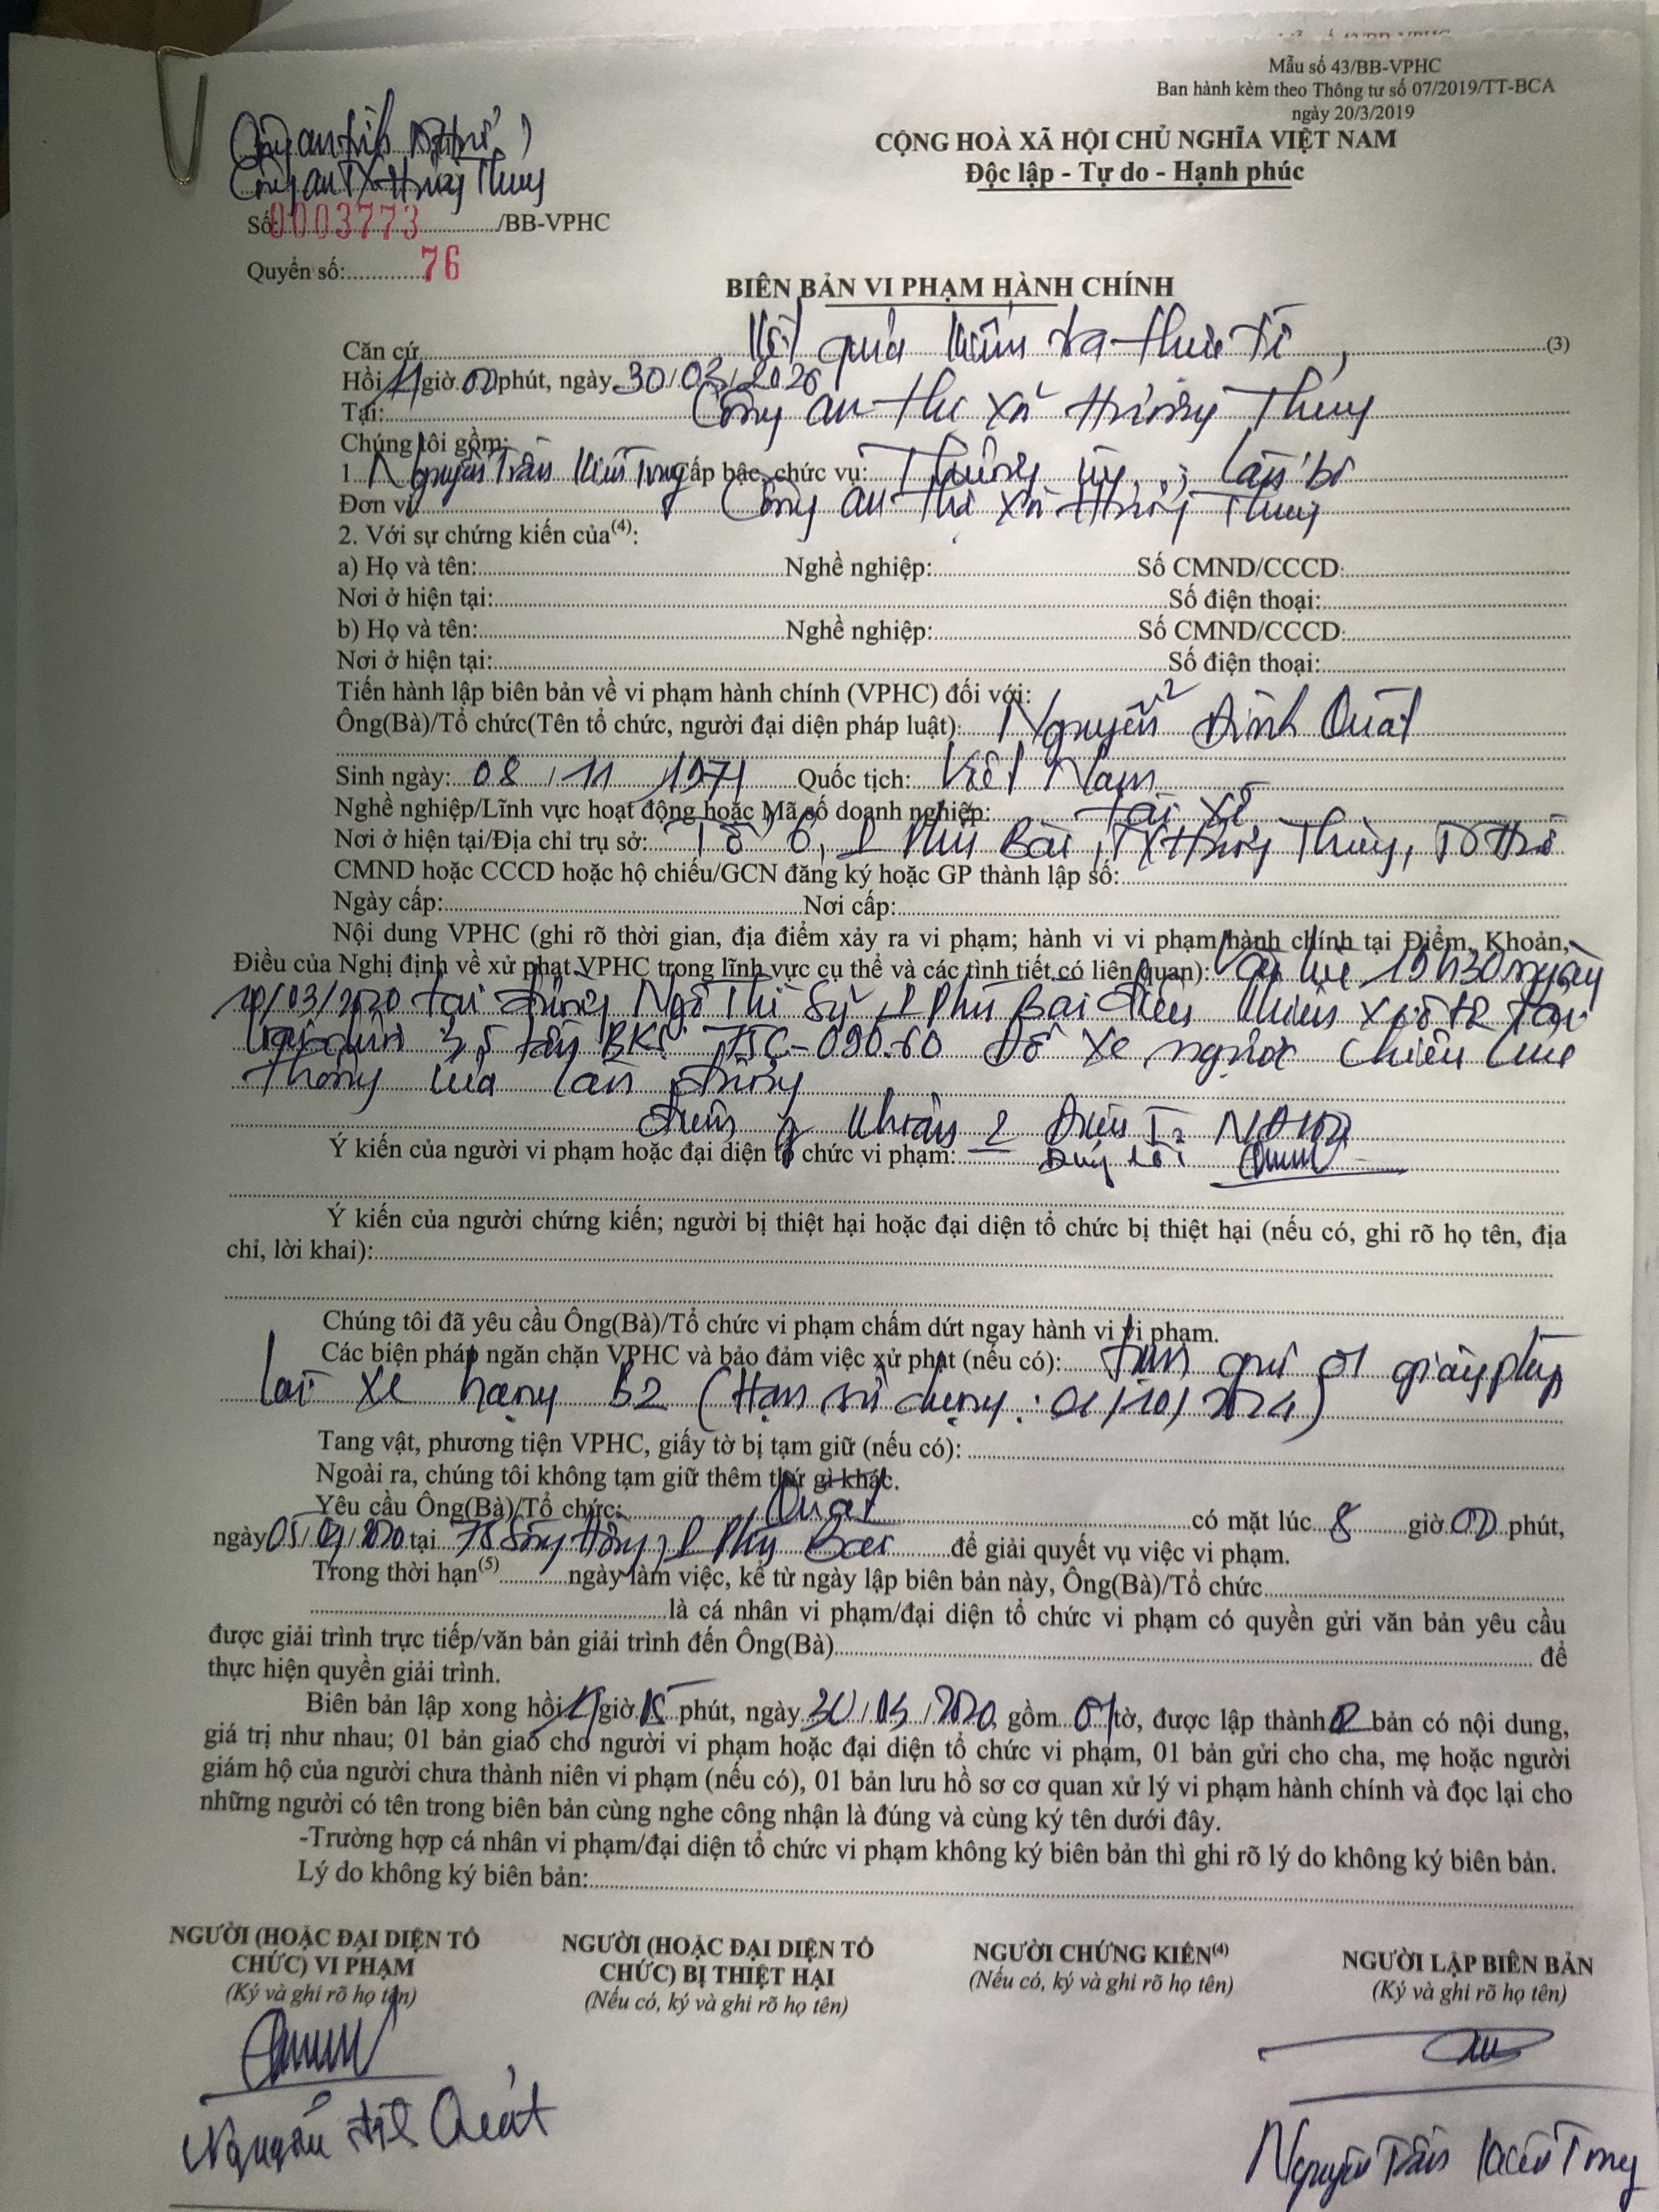 Mẫu số 43/BB-VPHC
Ban hành kèm theo Thông tư số 07/2019/TT-BCA
ngày 20/3/2019
CỘNG HOÀ XÃ HỘI CHỦ NGHĨA VIỆT NAM
Độc lập - Tự do - Hạnh phúc
Công an tỉnh
Công an TX Hương Thủy
Số: 0003773 /BB-VPHC
Quyển số: 76
BIÊN BẢN VI PHẠM HÀNH CHÍNH
Căn cứ Kết quả kiểm tra thực tế (3)
Hồi giờ 00 phút, ngày 30/03/2020
Tại: Công an thị xã Hương Thủy
Chúng tôi gồm:
1. Nguyễn Trần Cấp bậc, chức vụ: Thượng úy, cán bộ
Đơn vị: Công an thị xã Hương Thủy
2. Với sự chứng kiến của(4):
a) Họ và tên: Nghề nghiệp: Số CMND/CCCD:
Nơi ở hiện tại: Số điện thoại:
b) Họ và tên: Nghề nghiệp: Số CMND/CCCD:
Nơi ở hiện tại: Số điện thoại:
Tiến hành lập biên bản về vi phạm hành chính (VPHC) đối với:
Ông(Bà)/Tổ chức(Tên tổ chức, người đại diện pháp luật): Nguyễn Đình Quát
Sinh ngày: 08/11/1971 Quốc tịch: Việt Nam
Nghề nghiệp/Lĩnh vực hoạt động hoặc Mã số doanh nghiệp: Tài xế
Nơi ở hiện tại/Địa chỉ trụ sở: Tổ 6, P Phú Bài, TX Hương Thủy, TT Huế
CMND hoặc CCCD hoặc hộ chiếu/GCN đăng ký hoặc GP thành lập số:
Ngày cấp: Nơi cấp:
Nội dung VPHC (ghi rõ thời gian, địa điểm xảy ra vi phạm; hành vi vi phạm hành chính tại Điểm, Khoản,
Điều của Nghị định về xử phạt VPHC trong lĩnh vực cụ thể và các tình tiết có liên quan): Vào lúc 19h30 ngày
/03/2020 tại đường Ngô Thì Sỹ, P Phú Bài điều khiển xe ô tô tải
3,5 tấn BKS 75C-090.60 Đỗ xe ngược chiều lưu
thông của làn đường
điểm g khoản 2 Điều 5 NĐ 100
Ý kiến của người vi phạm hoặc đại diện tổ chức vi phạm:
Ý kiến của người chứng kiến; người bị thiệt hại hoặc đại diện tổ chức bị thiệt hại (nếu có, ghi rõ họ tên, địa
chỉ, lời khai):
Chúng tôi đã yêu cầu Ông(Bà)/Tổ chức vi phạm chấm dứt ngay hành vi vi phạm.
Các biện pháp ngăn chặn VPHC và bảo đảm việc xử phạt (nếu có): Tạm giữ 01 giấy phép
lái xe hạng B2 (Hạn sử dụng: 01/10/2024)
Tang vật, phương tiện VPHC, giấy tờ bị tạm giữ (nếu có):
Ngoài ra, chúng tôi không tạm giữ thêm thứ gì khác.
Yêu cầu Ông(Bà)/Tổ chức: Quát có mặt lúc 8 giờ 00 phút,
ngày 05/04/2020 tại 78 Sóng Hồng, P Phú Bài để giải quyết vụ việc vi phạm.
Trong thời hạn(5) ngày làm việc, kể từ ngày lập biên bản này, Ông(Bà)/Tổ chức
là cá nhân vi phạm/đại diện tổ chức vi phạm có quyền gửi văn bản yêu cầu
được giải trình trực tiếp/văn bản giải trình đến Ông(Bà) để
thực hiện quyền giải trình.
Biên bản lập xong hồi giờ 15 phút, ngày 30/03/2020, gồm 01 tờ, được lập thành 02 bản có nội dung,
giá trị như nhau; 01 bản giao cho người vi phạm hoặc đại diện tổ chức vi phạm, 01 bản gửi cho cha, mẹ hoặc người
giám hộ của người chưa thành niên vi phạm (nếu có), 01 bản lưu hồ sơ cơ quan xử lý vi phạm hành chính và đọc lại cho
những người có tên trong biên bản cùng nghe công nhận là đúng và cùng ký tên dưới đây.
-Trường hợp cá nhân vi phạm/đại diện tổ chức vi phạm không ký biên bản thì ghi rõ lý do không ký biên bản.
Lý do không ký biên bản:
NGƯỜI (HOẶC ĐẠI DIỆN TỔ
CHỨC) VI PHẠM
(Ký và ghi rõ họ tên)
Nguyễn Đình Quát
NGƯỜI (HOẶC ĐẠI DIỆN TỔ
CHỨC) BỊ THIỆT HẠI
(Nếu có, ký và ghi rõ họ tên)
NGƯỜI CHỨNG KIẾN(4)
(Nếu có, ký và ghi rõ họ tên)
NGƯỜI LẬP BIÊN BẢN
(Ký và ghi rõ họ tên)
Nguyễn Trần